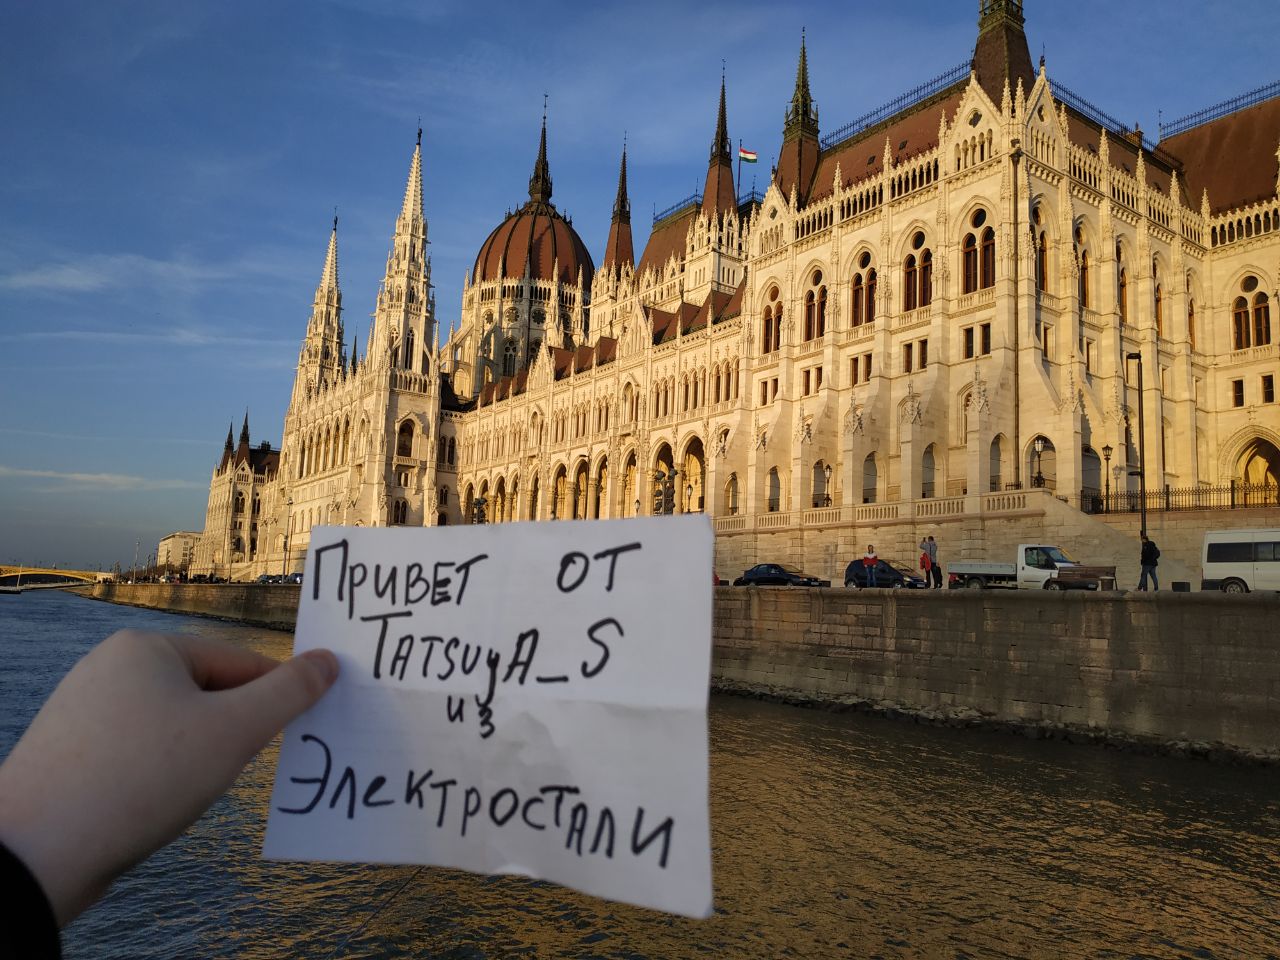 Привет от
TATSUYA_S
из
Электростали